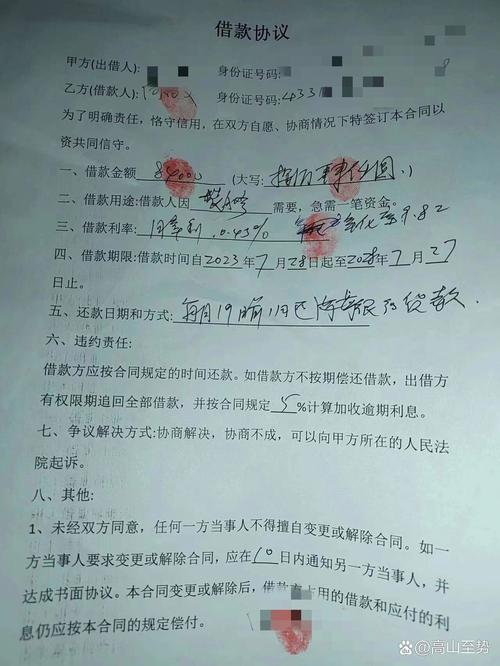 借款协议
甲方(出借人): 身份证号码: 8
乙方(借款人): 身份证号码: 4331
为了明确责任，恪守信用，在双方自愿、协商情况下特签订本合同以
资共同信守。
一、借款金额 84000 (大写: 捌万肆仟圆.)
二、借款用途:借款人因 装修 需要，急需一笔资金。
三、借款利率: 月率利 0.43% 9.82
四、借款期限:借款时间自2023年7月28日起至2028年7月27
日止。
五、还款日期和方式: 每月19 前 贷款.
六、违约责任:
借款方应按合同规定的时间还款。如借款方不按期偿还借款，出借方
有权限期追回全部借款，并按合同规定 5 %计算加收逾期利息。
七、争议解决方式:协商解决，协商不成，可以向甲方所在的人民法
院起诉。
八、其他:
1、未经双方同意，任何一方当事人不得擅自变更或解除合同。如一
方当事人要求变更或解除合同，应在10日内通知另一方当事人，并
达成书面协议。本合同变更或解除后，借款方占用的借款和应付的利
息仍应按本合同的规定偿付。
Bai百科 @高山至势